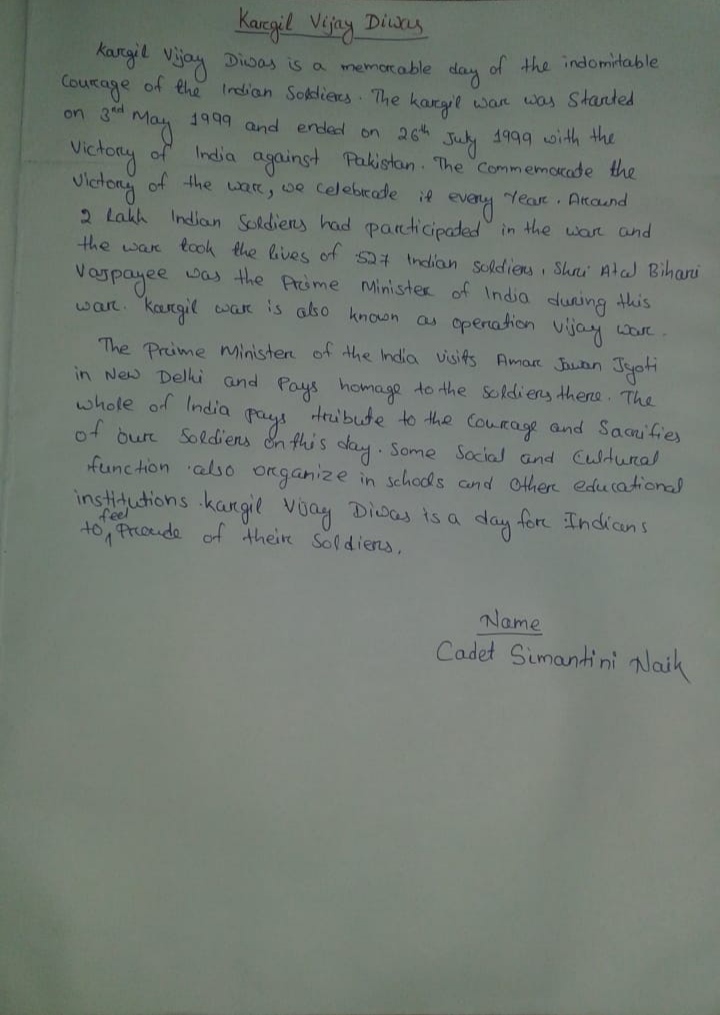 Kargil Vijay Diwas
Kargil Vijay Diwas is a memorable day of the indomitable
Courage of the Indian Soldiers. The kargil war was Started
on 3rd May 1999 and ended on 26th July 1999 with the
Victory of India against Pakistan. The Commemorade the
Victory of the war, we celebrade it every Year. Around
2 Lakh Indian Soldiers had participaded in the war and
the war took the lives of 527 Indian soldiers. Shri Atal Bihari
Vajpayee was the Prime Minister of India during this
war. Kargil war is also known as operation vijay war.
The Prime Minister of the India visits Amar Jawan Jyoti
in New Delhi and Pays homage to the soldiers there. The
whole of India pays tribute to the Courage and Sacrifies
of our Soldiers on this day. Some Social and Cultural
function also organize in schools and Other educational
institutions. Kargil Vijay Diwas is a day for Indians
to feel Proude of their Soldiers.
Name
Cadet Simantini Naik